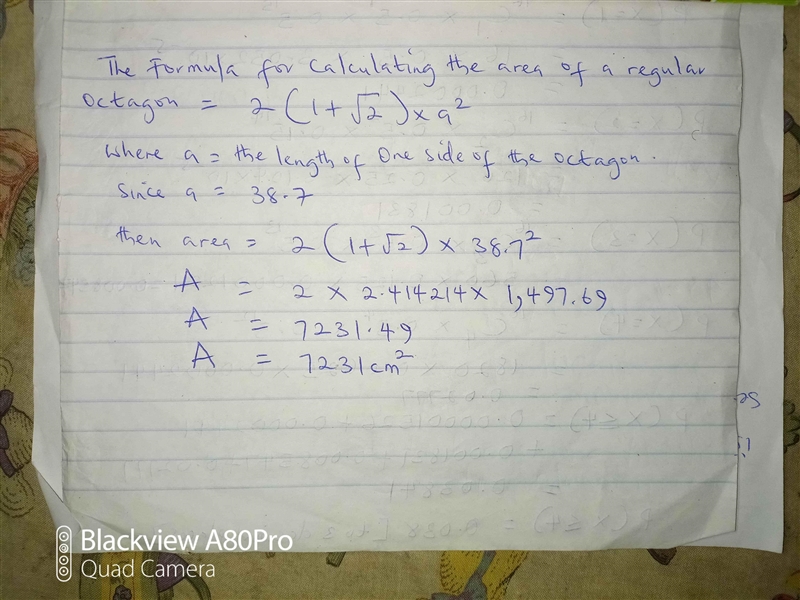 The Formula for Calculating the area of a regular
Octagon = 2(1+√2)×a²
Where a = the length of One side of the octagon.
Since a = 38.7
then area = 2(1+√2) × 38.7²
A = 2 × 2.414214 × 1,497.69
A = 7231.49
A = 7231cm²
Blackview A80Pro
Quad Camera